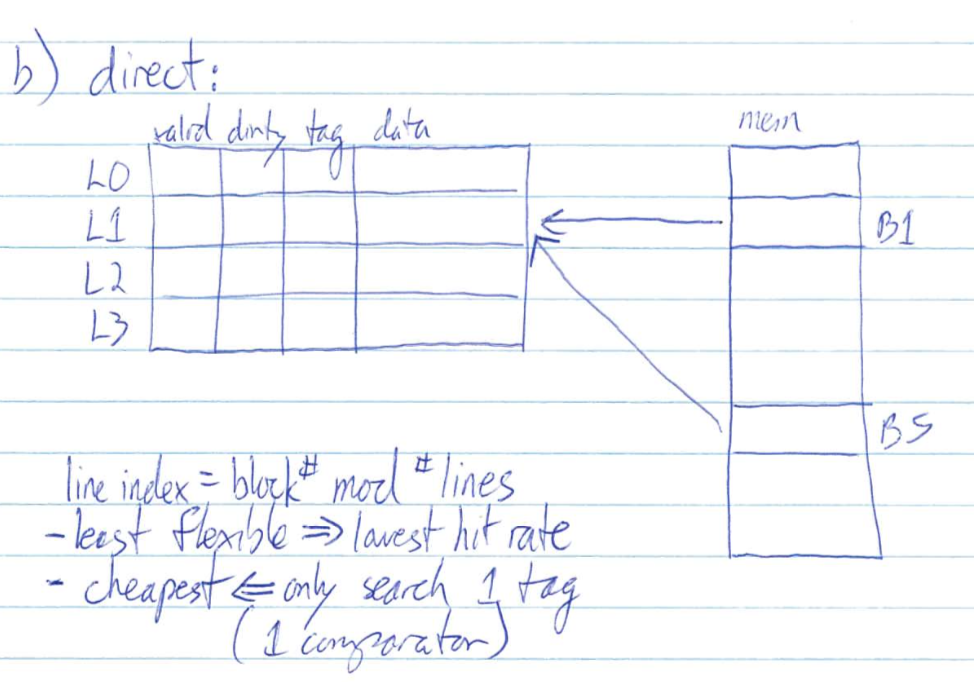 b) direct:
valid dirty tag data
mem
L0
L1
B1
L2
L3
B5
line index = block# mod # lines
- least flexible ⇒ lowest hit rate
- cheapest ⇐ only search 1 tag
(1 comparator)